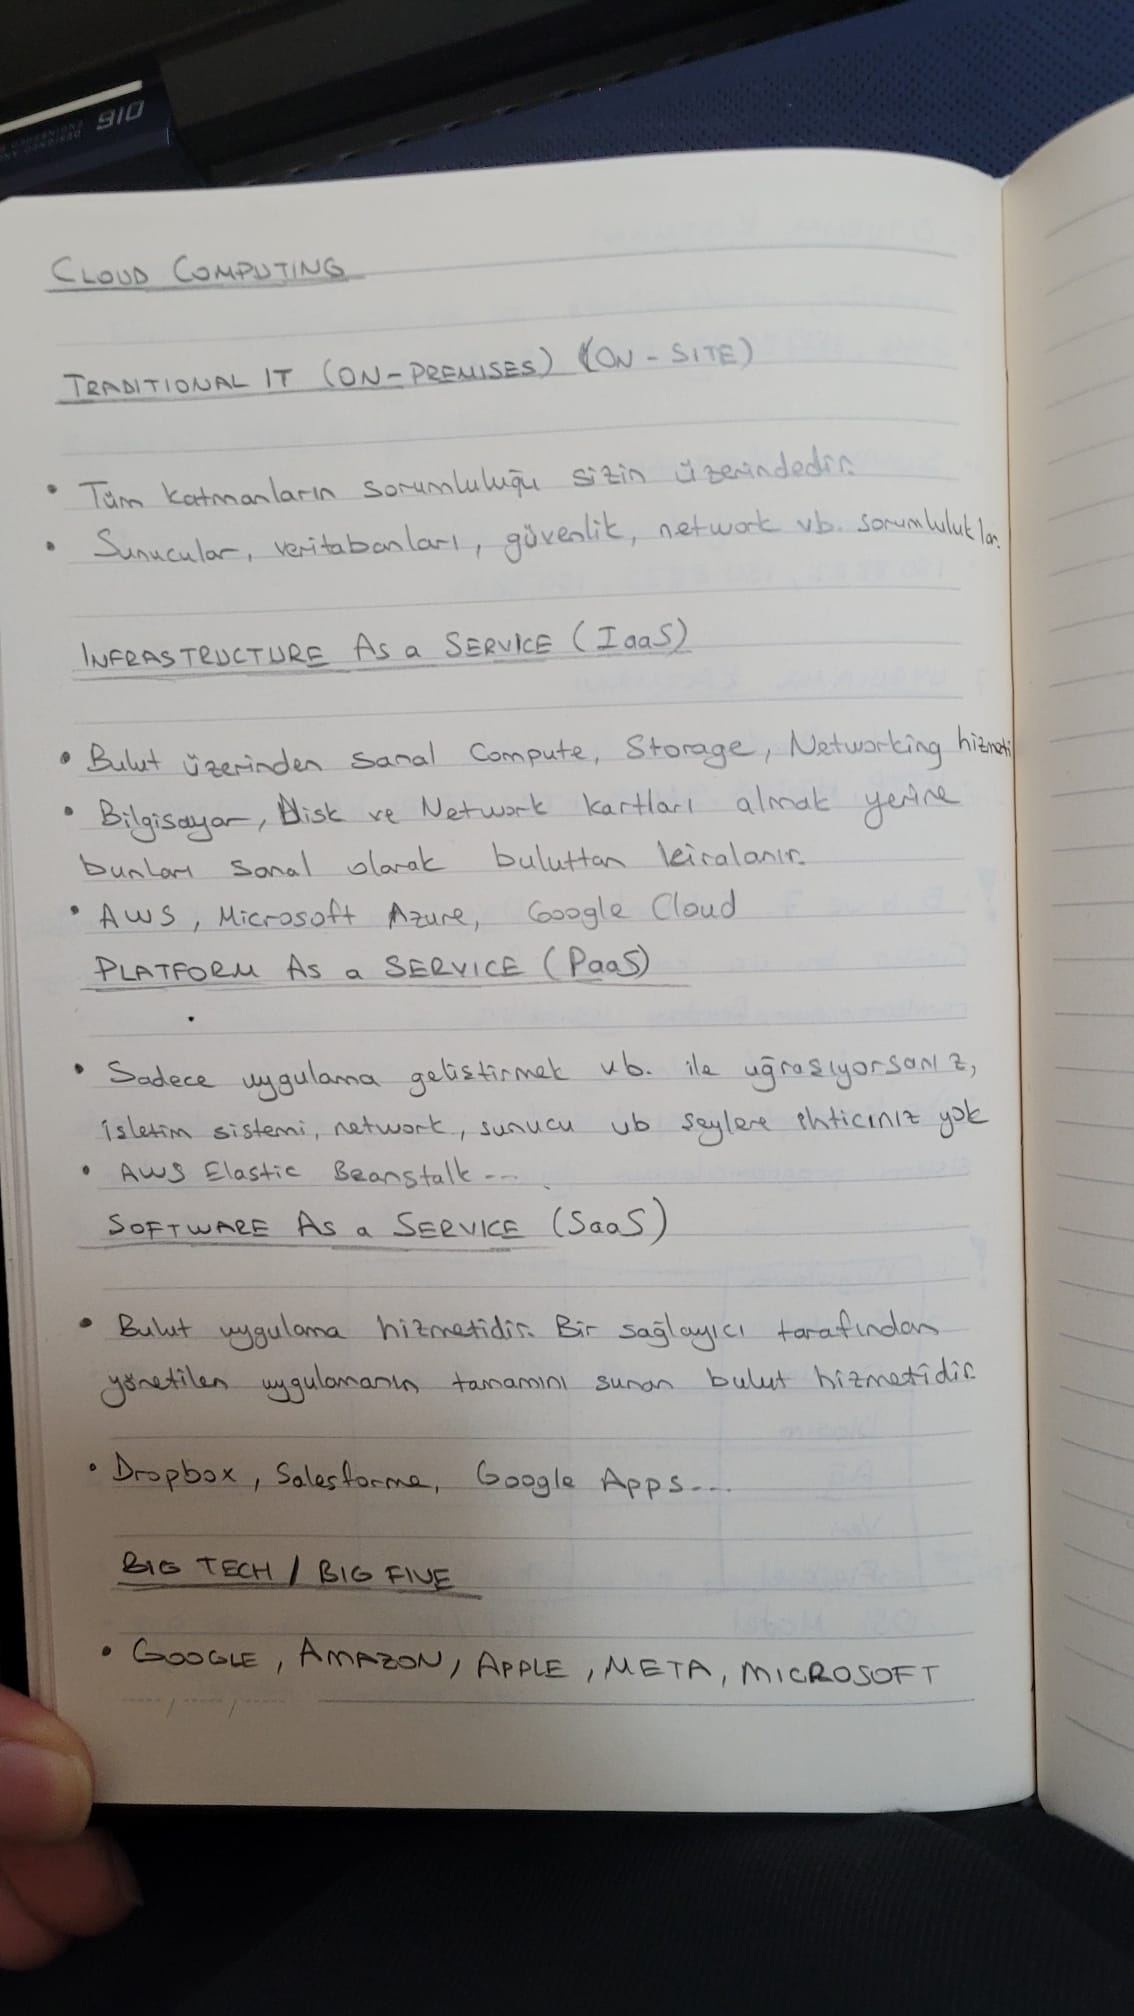 910
CLOUD COMPUTING
TRADITIONAL IT (ON-PREMISES) (ON-SITE)
• Tüm katmanların sorumluluğu sizin üzerindedir.
• Sunucular, veritabanları, güvenlik, network vb. sorumluluklar.
INFRASTRUCTURE As a SERVICE (IaaS)
• Bulut üzerinden sanal Compute, Storage, Networking hizmeti
• Bilgisayar, Disk ve Network kartları almak yerine
bunları sanal olarak buluttan kiralanır.
• AWS, Microsoft Azure, Google Cloud
PLATFORM As a SERVICE (PaaS)
• Sadece uygulama geliştirmek vb. ile uğraşıyorsanız,
işletim sistemi, network, sunucu vb şeylere ihticınız yok
• AWS Elastic Beanstalk...
SOFTWARE As a SERVICE (SaaS)
• Bulut uygulama hizmetidir. Bir sağlayıcı tarafından
yönetilen uygulamanın tamamını sunan bulut hizmetidir.
• Dropbox, Salesforme, Google Apps...
BIG TECH / BIG FIVE
• GOOGLE, AMAZON, APPLE, META, MICROSOFT